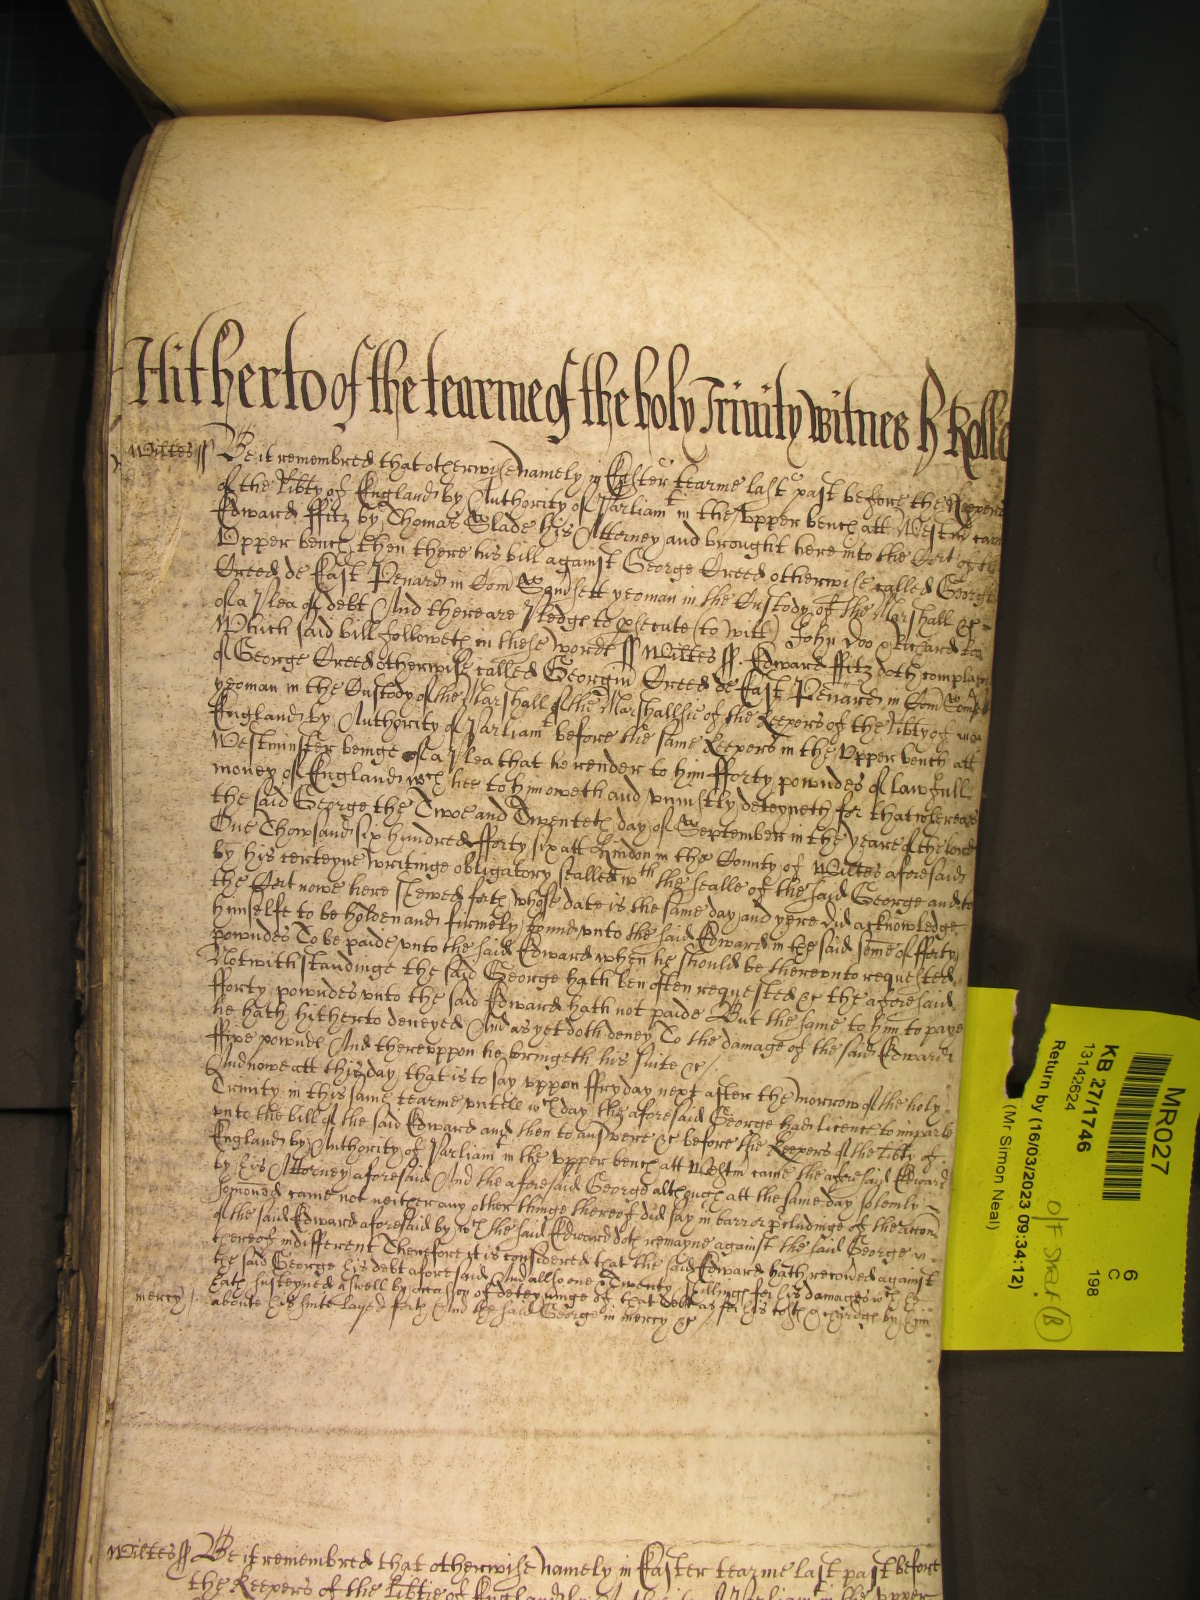 Hitherto of the tearme of the holy Trinity Witnes H Rolle
Wiltes ss Be it remembred that otherwise namely in Easter tearme last past before the Keepers
of the Libty of England by Authority of Parliamt in the Vpper bench att Westm came
Edward ffitz by Thomas Slade his Attorney and brought here into the Cort of the
Vpper bench then there his bill against George Creed otherwise called George
Creed de East Penard in Com Somsett yeoman in the Custody of the Marshall &c
of a Plea of debt And there are Pledge to psecute (to witt) John Doo Richard Roo
Which said bill followeth in these wordes ss Wiltes ss. Edward ffitz doth complayne
of George Creed otherwise called Georgiu Creed de East Penard in Com Somsett
yeoman in the Custody of the Marshall of the Marshallsie of the Keepers of the libty of
England by Authority of Parliamt before the same Keepers in the Vpper bench att
Westminster beinge of a Plea that he render to him fforty powndes of lawfull
money of England wch hee to him oweth and vniustly deteyneth for that whereas
the said George the Twoe and Twenteth day of September in the yeare of the lord
One Thowsand six hundred fforty six att Hindon in the County of Wiltes aforesaid
by his certeyne writinge obligatory sealled wth the sealle of the said George and to
the Cort nowe here shewed forth whose date is the same day and yere did acknowledge
himselfe to be holden and firmely bound vnto the said Edward in the said some of fforty
powndes To be paide vnto the said Edward when he should be therevnto requested
Notwithstandinge the said George hath ben often requested &c the aforesaid
fforty powndes vnto the said Edward hath not paide But the same to him to paye
he hath hitherto denyed And as yet doth deney To the damage of the said Edward
ffive powndes And therevppon he bringeth his suite &c
And nowe att this day that is to say vppon ffryday next after the morrow of the holy
Trinity in this same tearme vntill wch day the aforesaid George had licence to imparle
vnto the bill of the said Edward and then to answere &c before the Keepers of the libty of
England by Authority of Parliamt in the vpper bench att Westm came the aforesaid Edward
by his Attorney aforesaid And the aforesaid George although att the same day solemly
demaund came not neither any other thinge thereof did say in barr or pcludinge of the accon
of the said Edward aforesaid by wch the said Edward doth remayne against the said George
thereof indifferent Therefore it is considered that the said Edward hath recoved against
the said George his debt aforesaid And allso one & Twenty shillings for his damages wch he
hath susteyned aswell by occasion of deteyninge of that debt as for his costs & chardge by him
mercy aboute his suite layed forth And the said George in mercy &c
Wiltes ss Be it remembred that otherwise namely in Easter tearme last past before
the Keepers of the Libtie of England by
MR027
KB 27/1746
13142624
Return by (16/03/2023 09:34:12)
(Mr Simon Neal)
6
C
198
O/F SHELF (B)